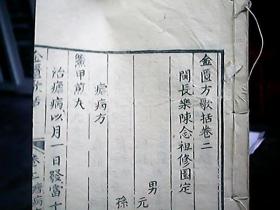 金匱方歌括卷二
閩長樂陳念祖修園定
男
元
孫
瘧病方
鱉甲煎丸
治瘧病以月一日發當十
金匱歌括
卷二瘧病